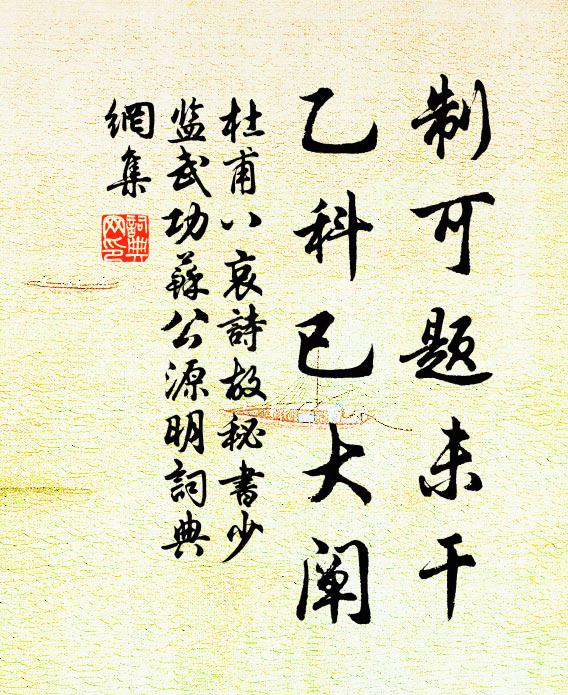 制可题未干
乙科已大阐
杜甫八哀詩故秘書少
监武功蘇公源明詞典
網集
詞典
网印